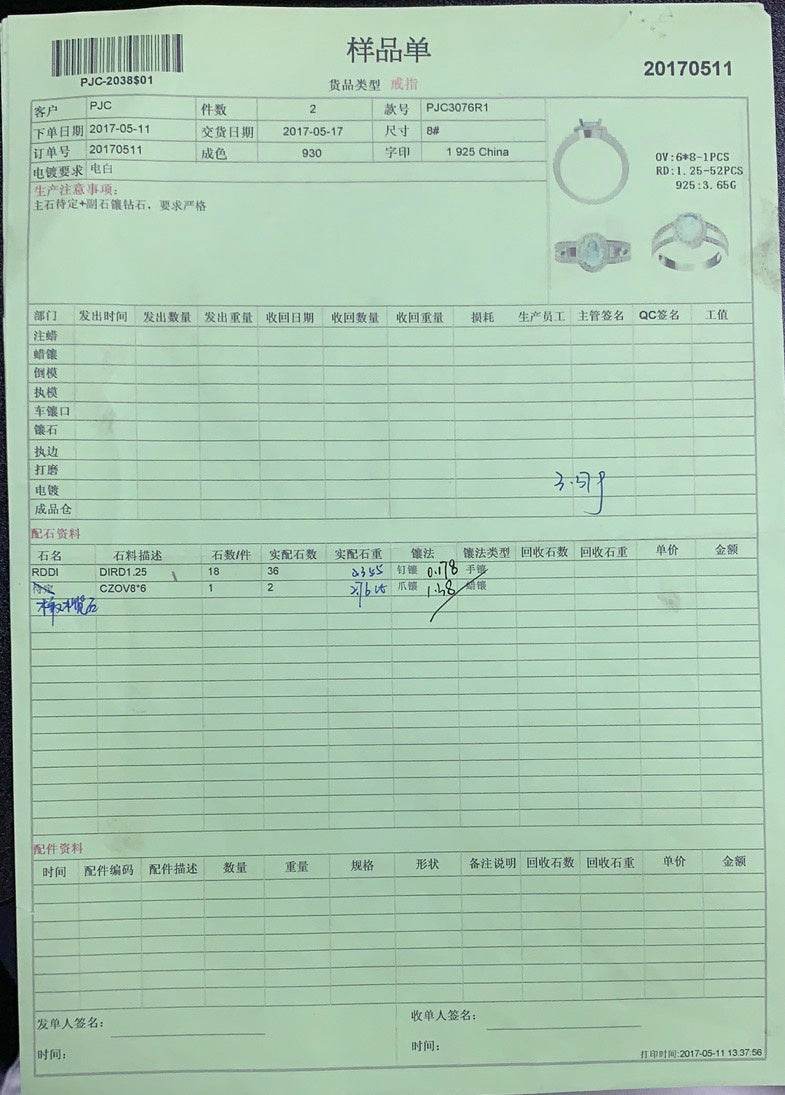 样品单
PJC-2038$01
货品类型 戒指
20170511
客户 PJC 件数 2 款号 PJC3076R1
下单日期 2017-05-11 交货日期 2017-05-17 尺寸 8#
订单号 20170511 成色 930 字印 1 925 China
电镀要求 电白
OV:6*8-1PCS
RD:1.25-52PCS
925:3.65G
生产注意事项:
主石待定+副石镶钻石，要求严格
部门 发出时间 发出数量 发出重量 收回日期 收回数量 收回重量 损耗 生产员工 主管签名 QC签名 工值
注蜡
蜡镶
倒模
执模
车镶口
镶石
执边
打磨
电镀
成品仓
配石资料
石名 石料描述 石数/件 实配石数 实配石重 镶法 镶法类型 回收石数 回收石重 单价 金额
RDDI DIRD1.25 18 36 钉镶 0.178 手镶
待定 CZOV8*6 1 2 爪镶 蜡镶
配件资料
时间 配件编码 配件描述 数量 重量 规格 形状 备注说明 回收石数 回收石重 单价 金额
发单人签名: 收单人签名:
时间: 时间:
打印时间:2017-05-11 13:37:56